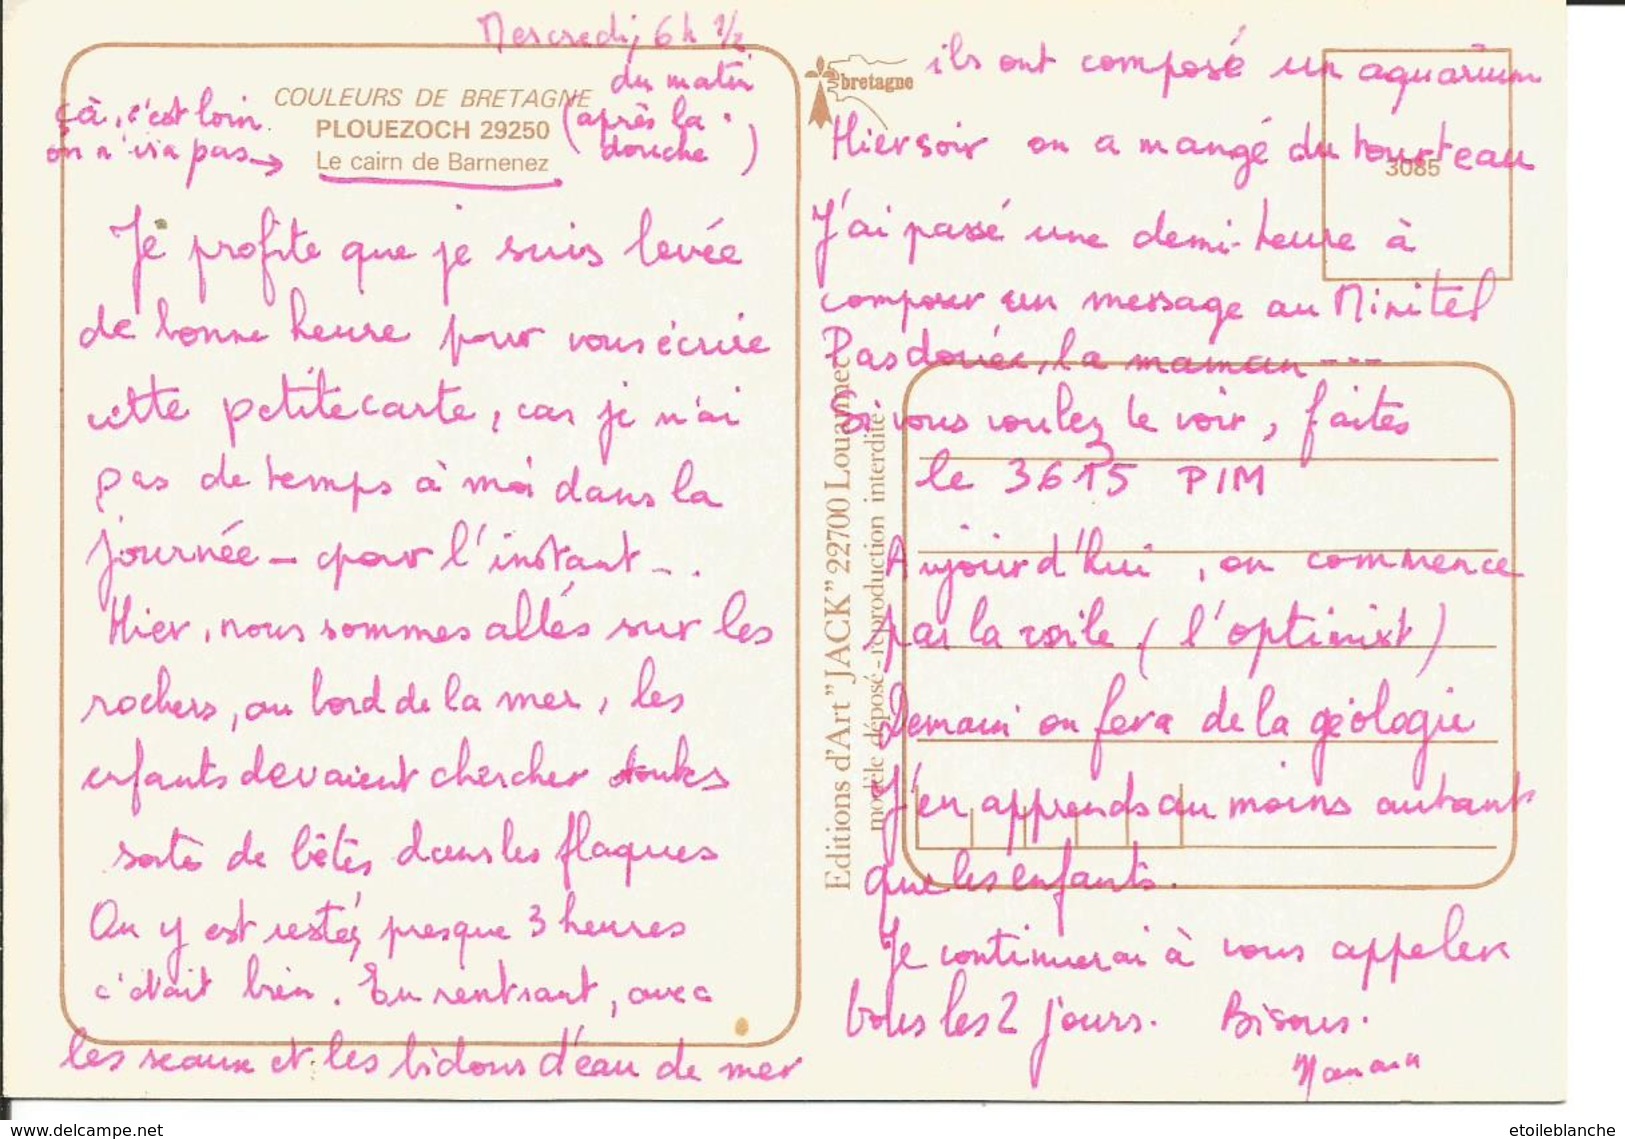 Mercredi, 6h 1/2
du matin
(après la
douche)
çà, c'est loin
on n'ira pas →
COULEURS DE BRETAGNE
PLOUEZOCH 29250
Le cairn de Barnenez
Je profite que je suis levée
de bonne heure pour vous écrire
cette petite carte, car je n'ai
pas de temps à moi dans la
journée - pour l'instant - .
Hier, nous sommes allés sur les
rochers, au bord de la mer, les
enfants devaient chercher toutes
sorte de bêtes dans les flaques
On y est restés presque 3 heures
c'était bien. En rentrant, avec
les seaux et les bidons d'eau de mer
bretagne
3085
ils ont composé un aquarium
Hier soir on a mangé du tourteau
J'ai passé une demi-heure à
composer un message au Minitel
Pas douée, la maman ---
Si vous voulez le voir, faites
le 3615 PIM
Aujourd'hui, on commence
par la voile (l'optimist)
Demain on fera de la géologie
J'en apprends au moins autant
que les enfants.
Je continuerai à vous appeler
tous les 2 jours. Bisous.
Maman
Editions d'Art "JACK" 22700 Louannec
modèle déposé - reproduction interdite
www.delcampe.net
etoileblanche